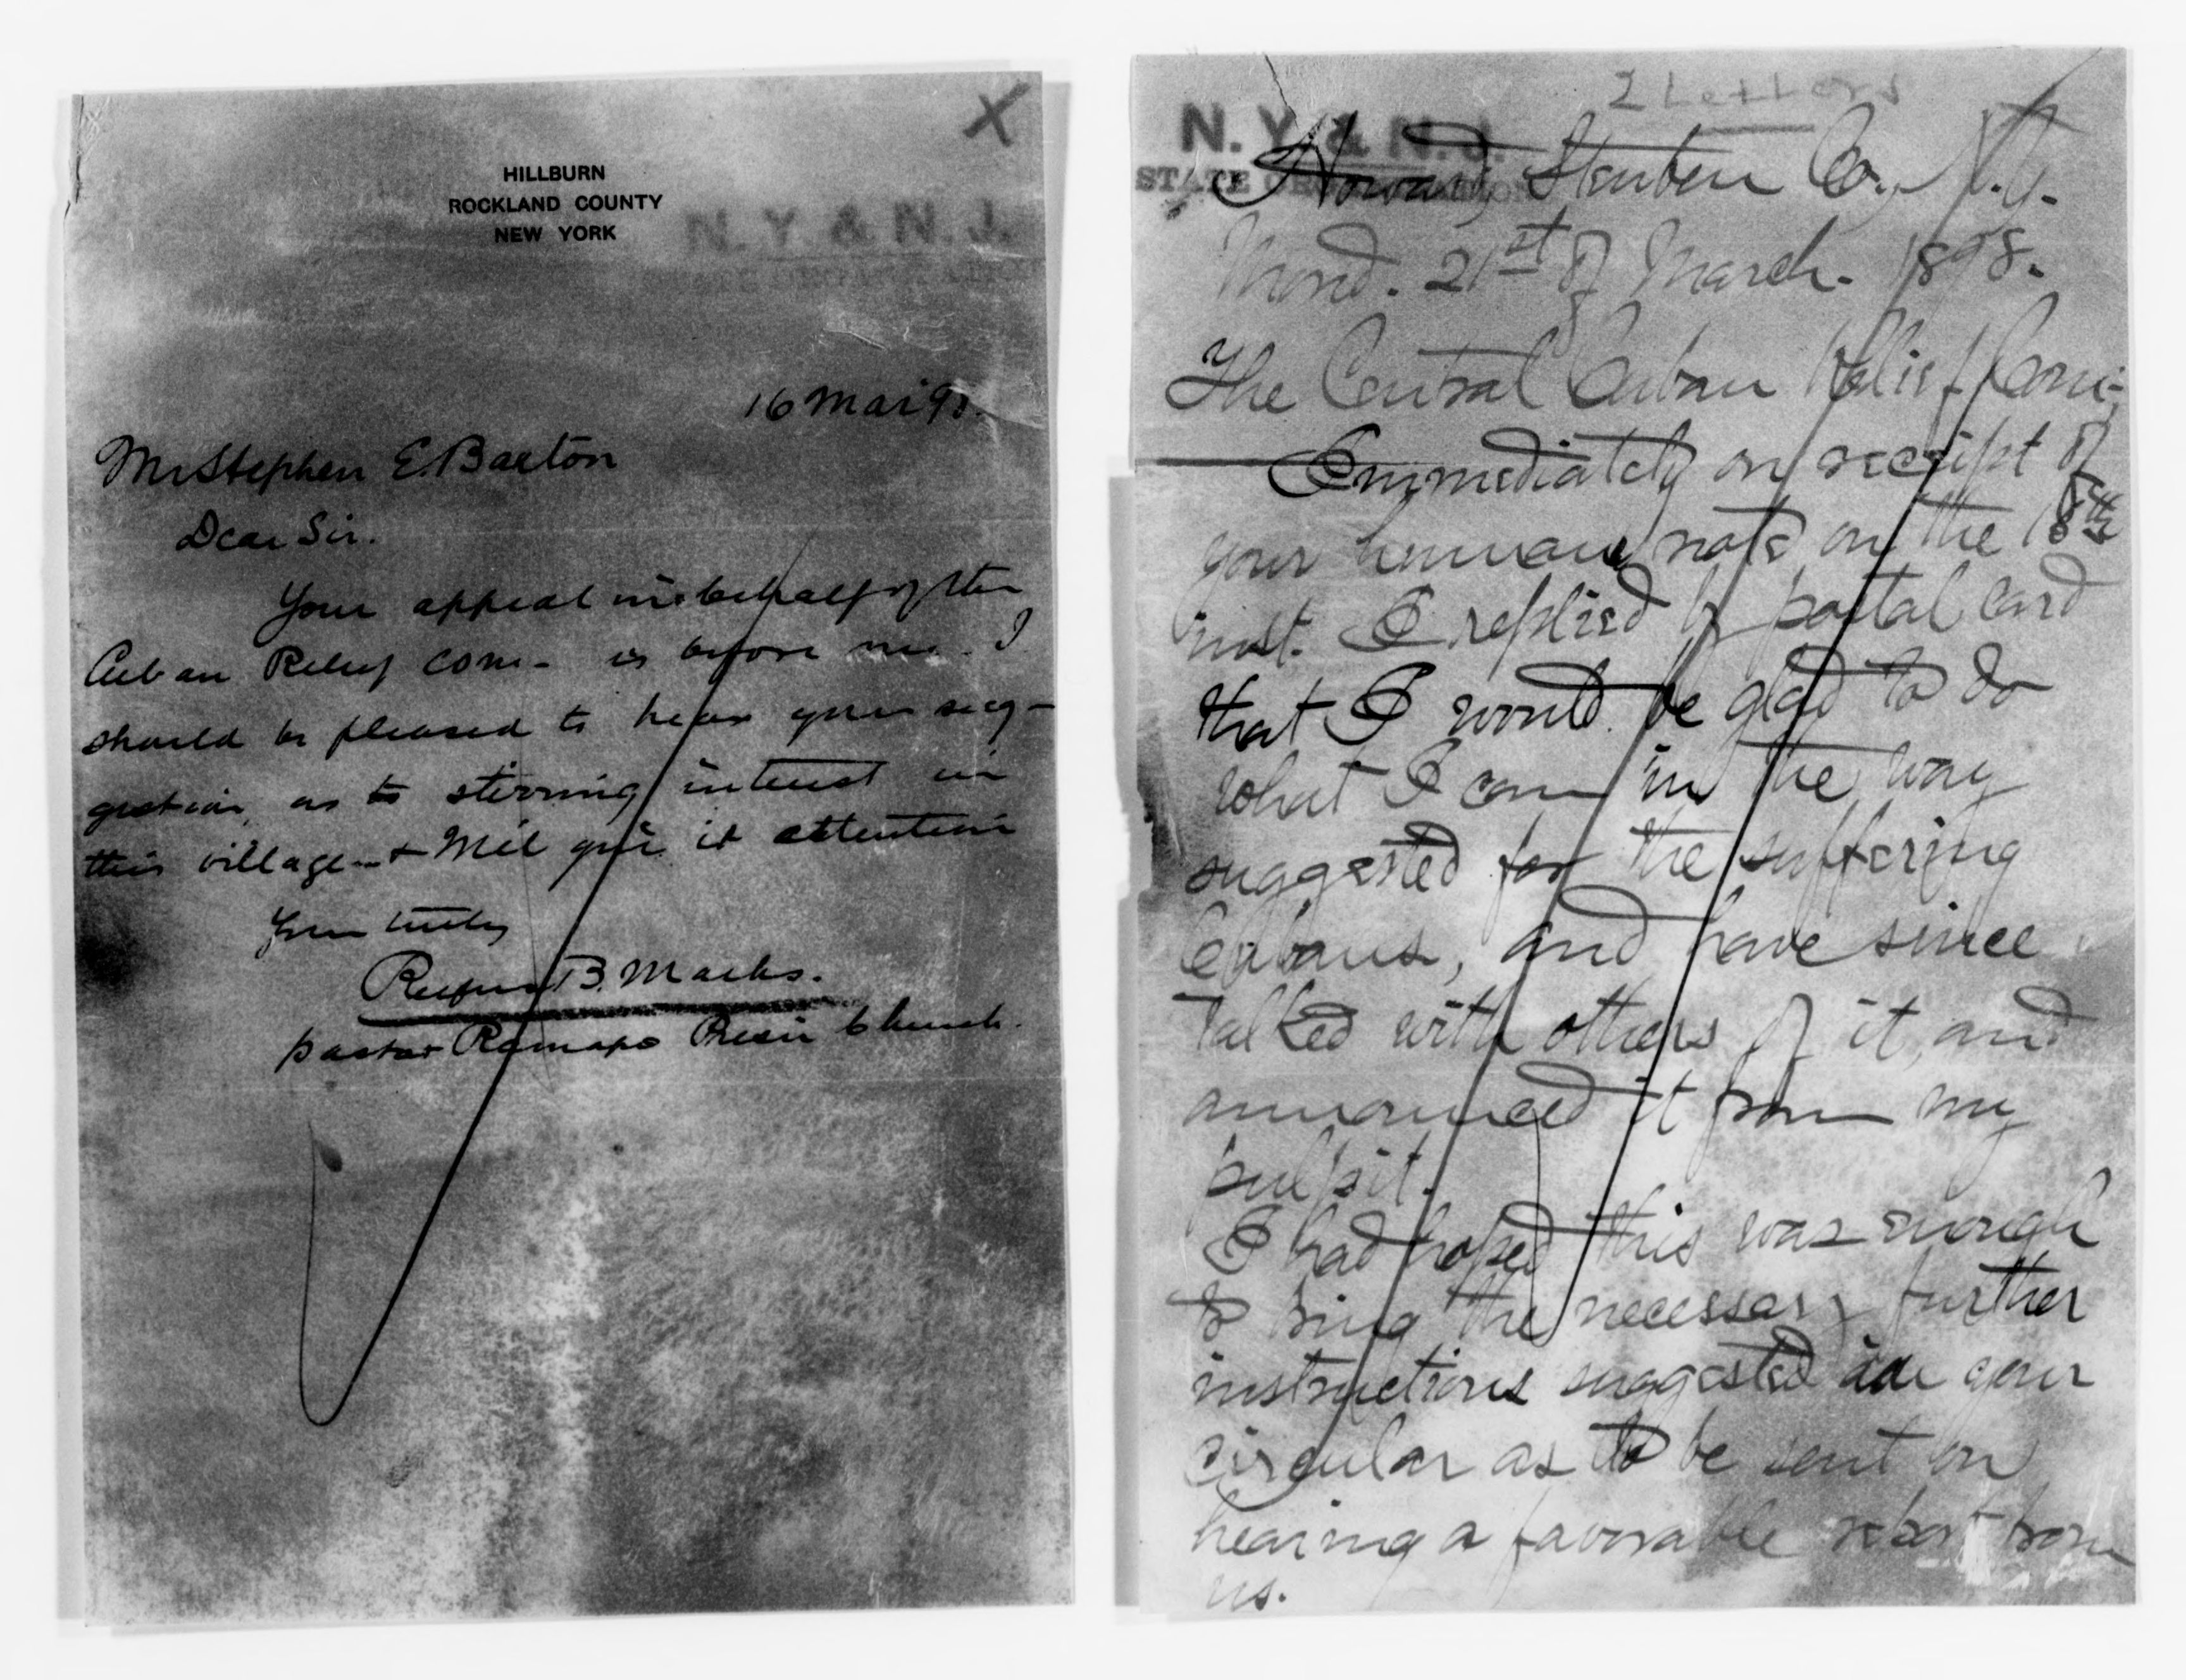 X
HILLBURN
ROCKLAND COUNTY
NEW YORK
N. Y. & N. J.
16 Mar 98.
Mr Stephen E. Barton
Dear Sir.
Your appeal in behalf of the
Cuban Relief Com- is before me. I
should be pleased to hear your sug-
gestion, as to stirring interest in
this village & will give it attention
Yours truly
Rufus B. Marks.
pastor Ramapo Presn Church.
2 Letters
N. Y. & N. J.
STATE ORGANIZATION
Howard, Steuben Co., N.Y.
Mond. 21st of March. 1898.
The Central Cuban Relief Com;
Immediately on receipt of
your humane note on the 18th
inst. I replied by postal card
that I would be glad to do
what I can in the way
suggested for the suffering
Cubans, and have since
talked with others of it, and
announced it from my
pulpit.
I had hoped this was enough
to bring the necessary further
instructions suggested in your
circular as to be sent on
hearing a favorable report from
us.